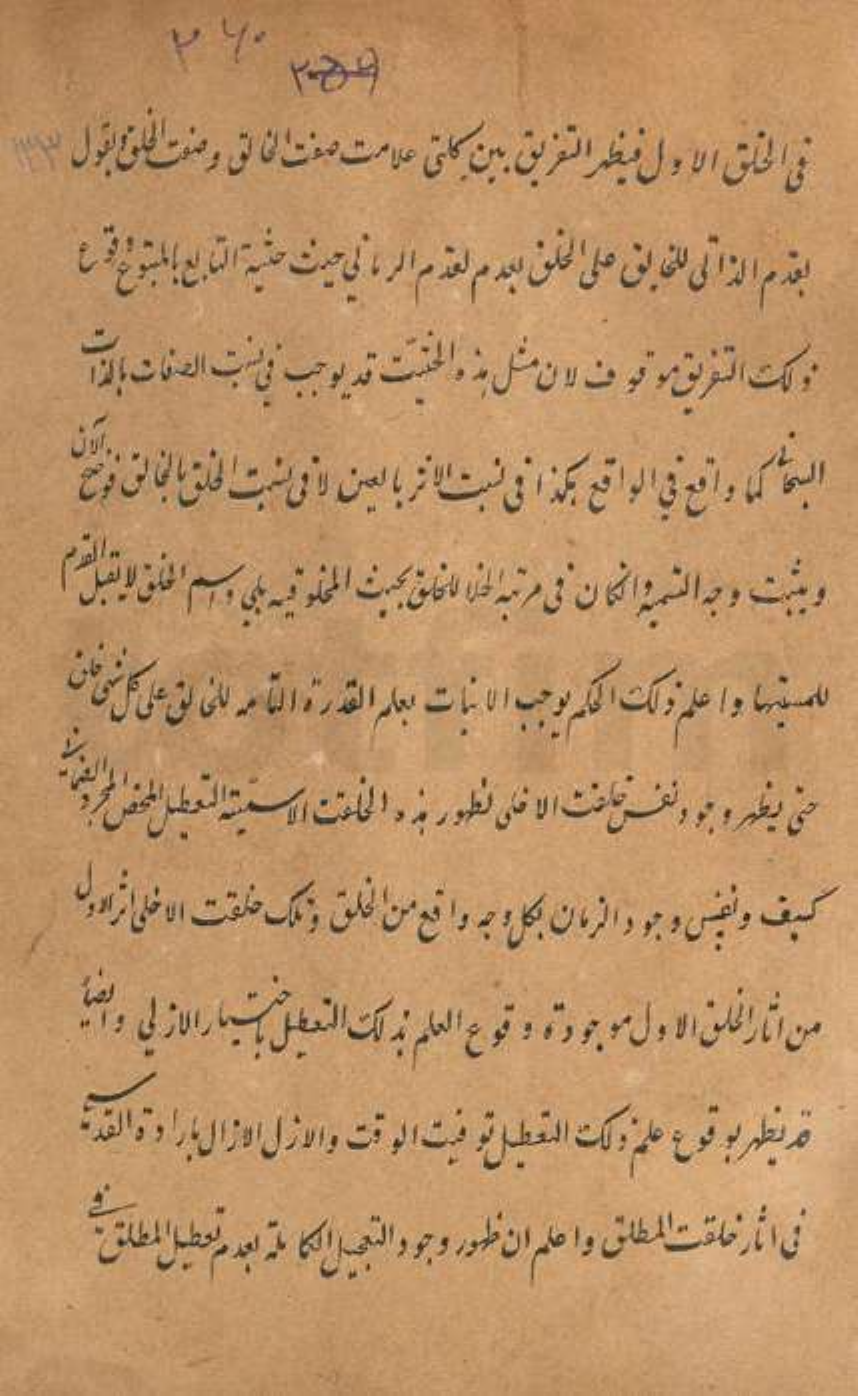 ٢٦٠
٢٥٩
في الخلق الاول فيظهر التفريق بين كلتى علامت صفت الخالق وصفت الخلق ويقول
بقدم الذاتى للخالق على الخلق بعدم لقدم الزماني حيث حثية التابع بالمتبوع وقوع
ذلك التفريق موقوف لان مثل هذه الحثيت قد يوجب في نسبت الصفات بالذات
كما واقع في الواقع هكذا في نسبت الاثر بالعين لا في نسبت الخلق بالخالق فوضح الآن
ويثبت وجه التسمية وانكان في مرتبه للخلق بحيث المخلوقيه بلي واسم الخلق لا يقبل القدم
واعلم ذلك الحكم يوجب الاثبات بعلم القدرة التامه للخالق على كل شى
حتى يظهر وجود نفس خلقت الاخلى لظهور هذه الخلقت التعطيل المحض المجرد
كيف ونفس وجود الزمان بكل وجه واقع من الخلق وتلك خلقت الاخلى اثر الاول
من اثار الخلق الاول موجودة وقوع العلم بذلك التعطيل باختيار الازلي وايضاً
قد يظهر بوقوع علم ذلك التعطيل توقيت الوقت والازل الازال بارادة القديم
فى اثار خلقت المطلق واعلم ان ظهور وجود التعجيل الكاملة بعدم تعطيل المطلق فى